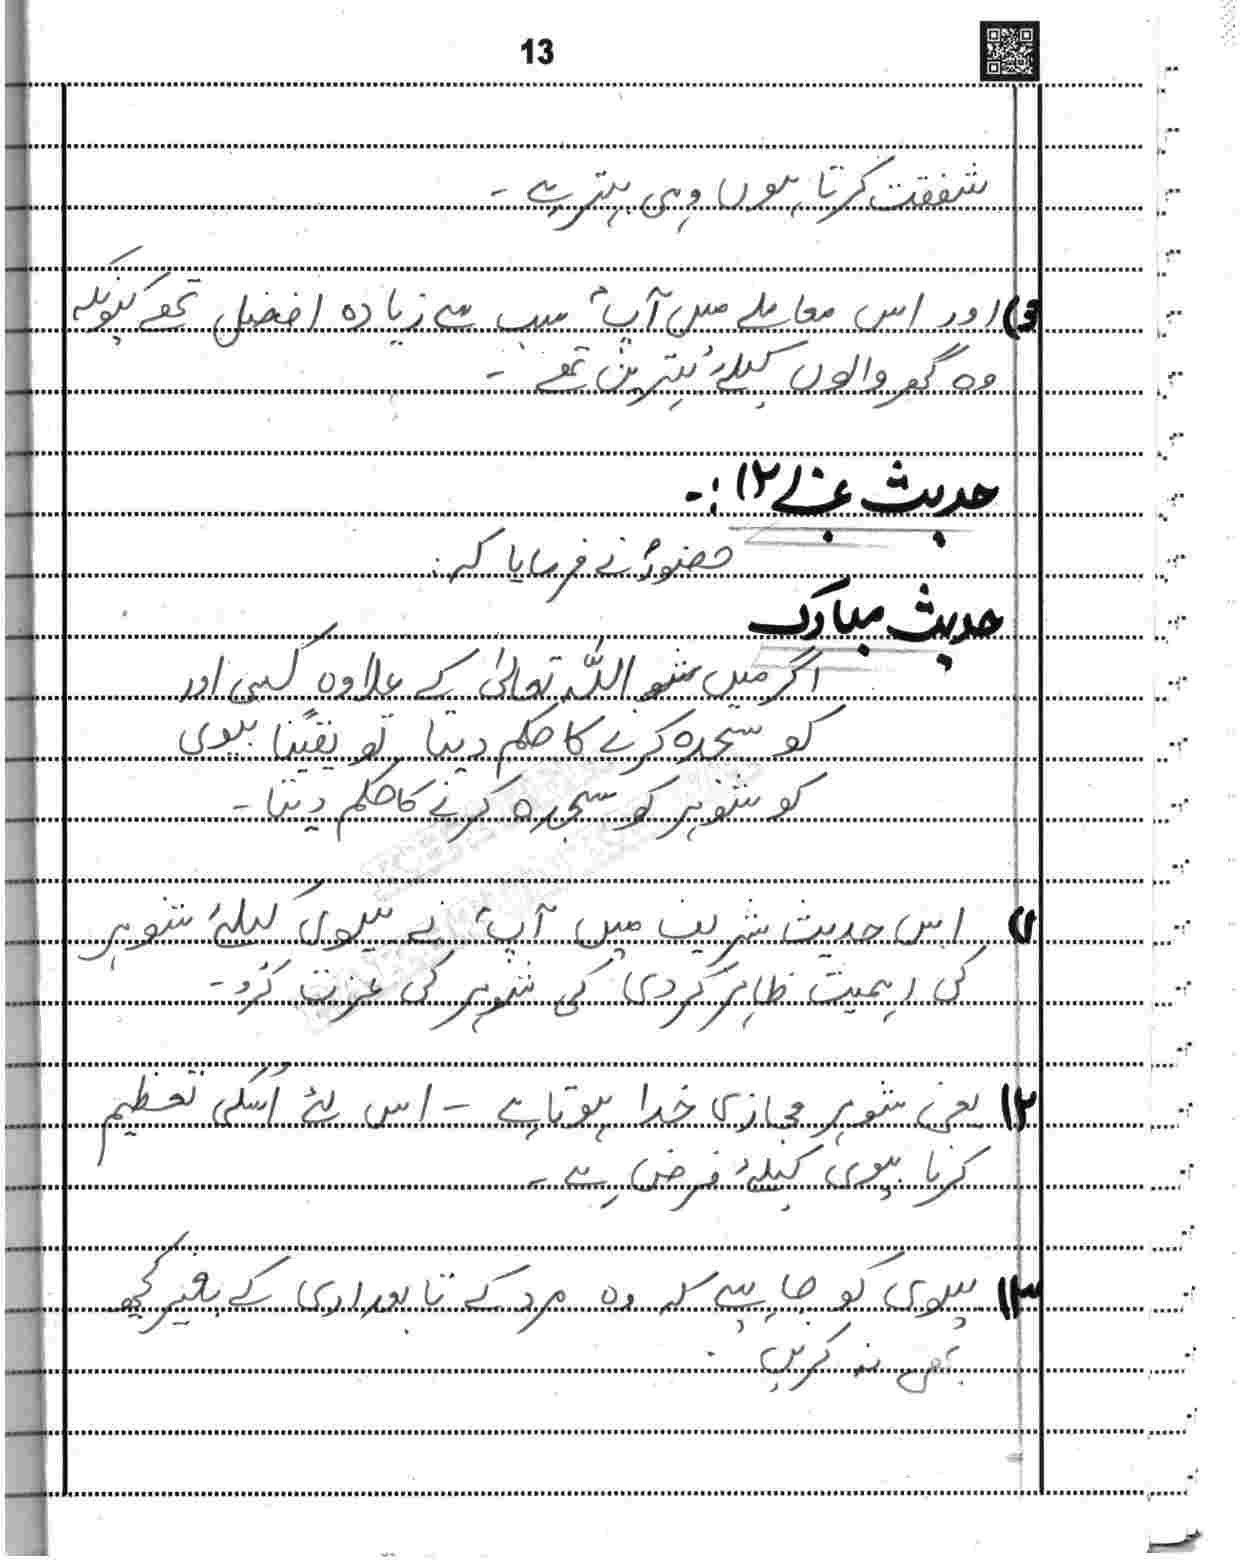 13
شفقت کرتا ہوں وہی بہتر ہے۔
3) اور اس معاملے میں آپؐ سب سے زیادہ افضل تھے کیونکہ
وہ گھر والوں کیلئے بہترین تھے۔
حدیث نمبر ۱۲:-
حضورؐ نے فرمایا کہ:
حدیث مبارک
اگر میں اللہ تعالیٰ کے علاوہ کسی اور
کو سجدہ کرنے کا حکم دیتا تو یقیناً بیوی
کو شوہر کو سجدہ کرنے کا حکم دیتا۔
اس حدیث شریف میں آپؐ نے بیوی کیلئے شوہر
کی اہمیت ظاہر کردی کی شوہر کی عزت کرو۔
۲) یعنی شوہر مجازی خدا ہوتا ہے۔ اس لئے اُسکی تعظیم
کرنا بیوی کیلئے فرض ہے۔
۳) بیوی کو چاہیے کہ وہ مرد کے تابعداری کے بغیر کچھ
بھی نہ کریں